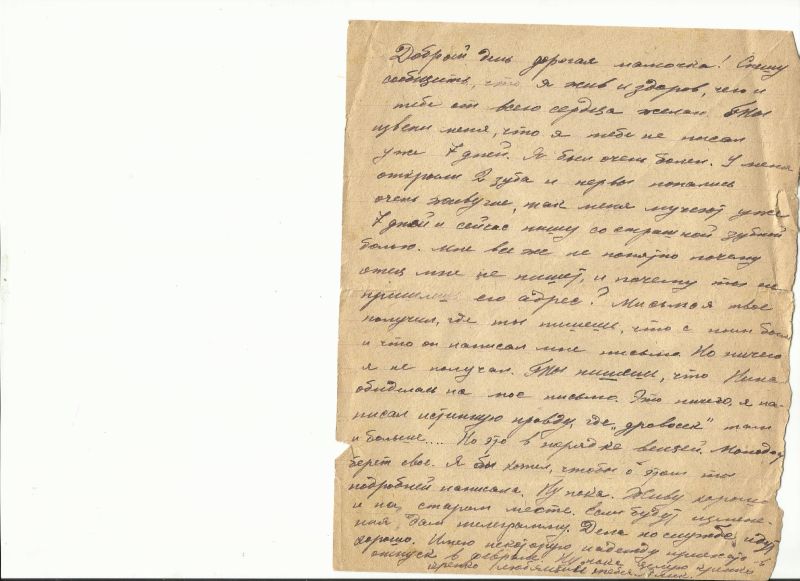 Добрый день дорогая мамочка! Спешу
сообщить, что я жив и здоров, чего и
тебе от всего сердца желаю. Ты
извени меня, что я тебе не писал
уже 7 дней. Я был очень болен. У меня
открыли 2 зуба и нервы попались
очень живучие, так меня мучают уже
7 дней и сейчас пишу со страшной зубной
болью. Мне все же не понятно почему
отец мне не пишет, и почему ты не
пришлешь его адрес? Письмо я твое
получил, где ты пишешь, что с ним был
и что он написал мне письмо. Но ничего
я не получал. Ты пишешь, что Нина
обиделась на мое письмо. Это ничего, я на-
писал истинную правду, где "дровосек" там
и больше.... Но это в порядке вещей. Молодость
берет свое. Я бы хотел, чтобы о этом ты
подробней написала. Ну пока. Живу хорошо
и на старом месте, если будут измене-
ния, дам телеграмму. Дела по службе идут
хорошо. Имею некоторую надежду приехать в
отпуск в феврале. Ну пока целую крепко
крепко любящий тебя